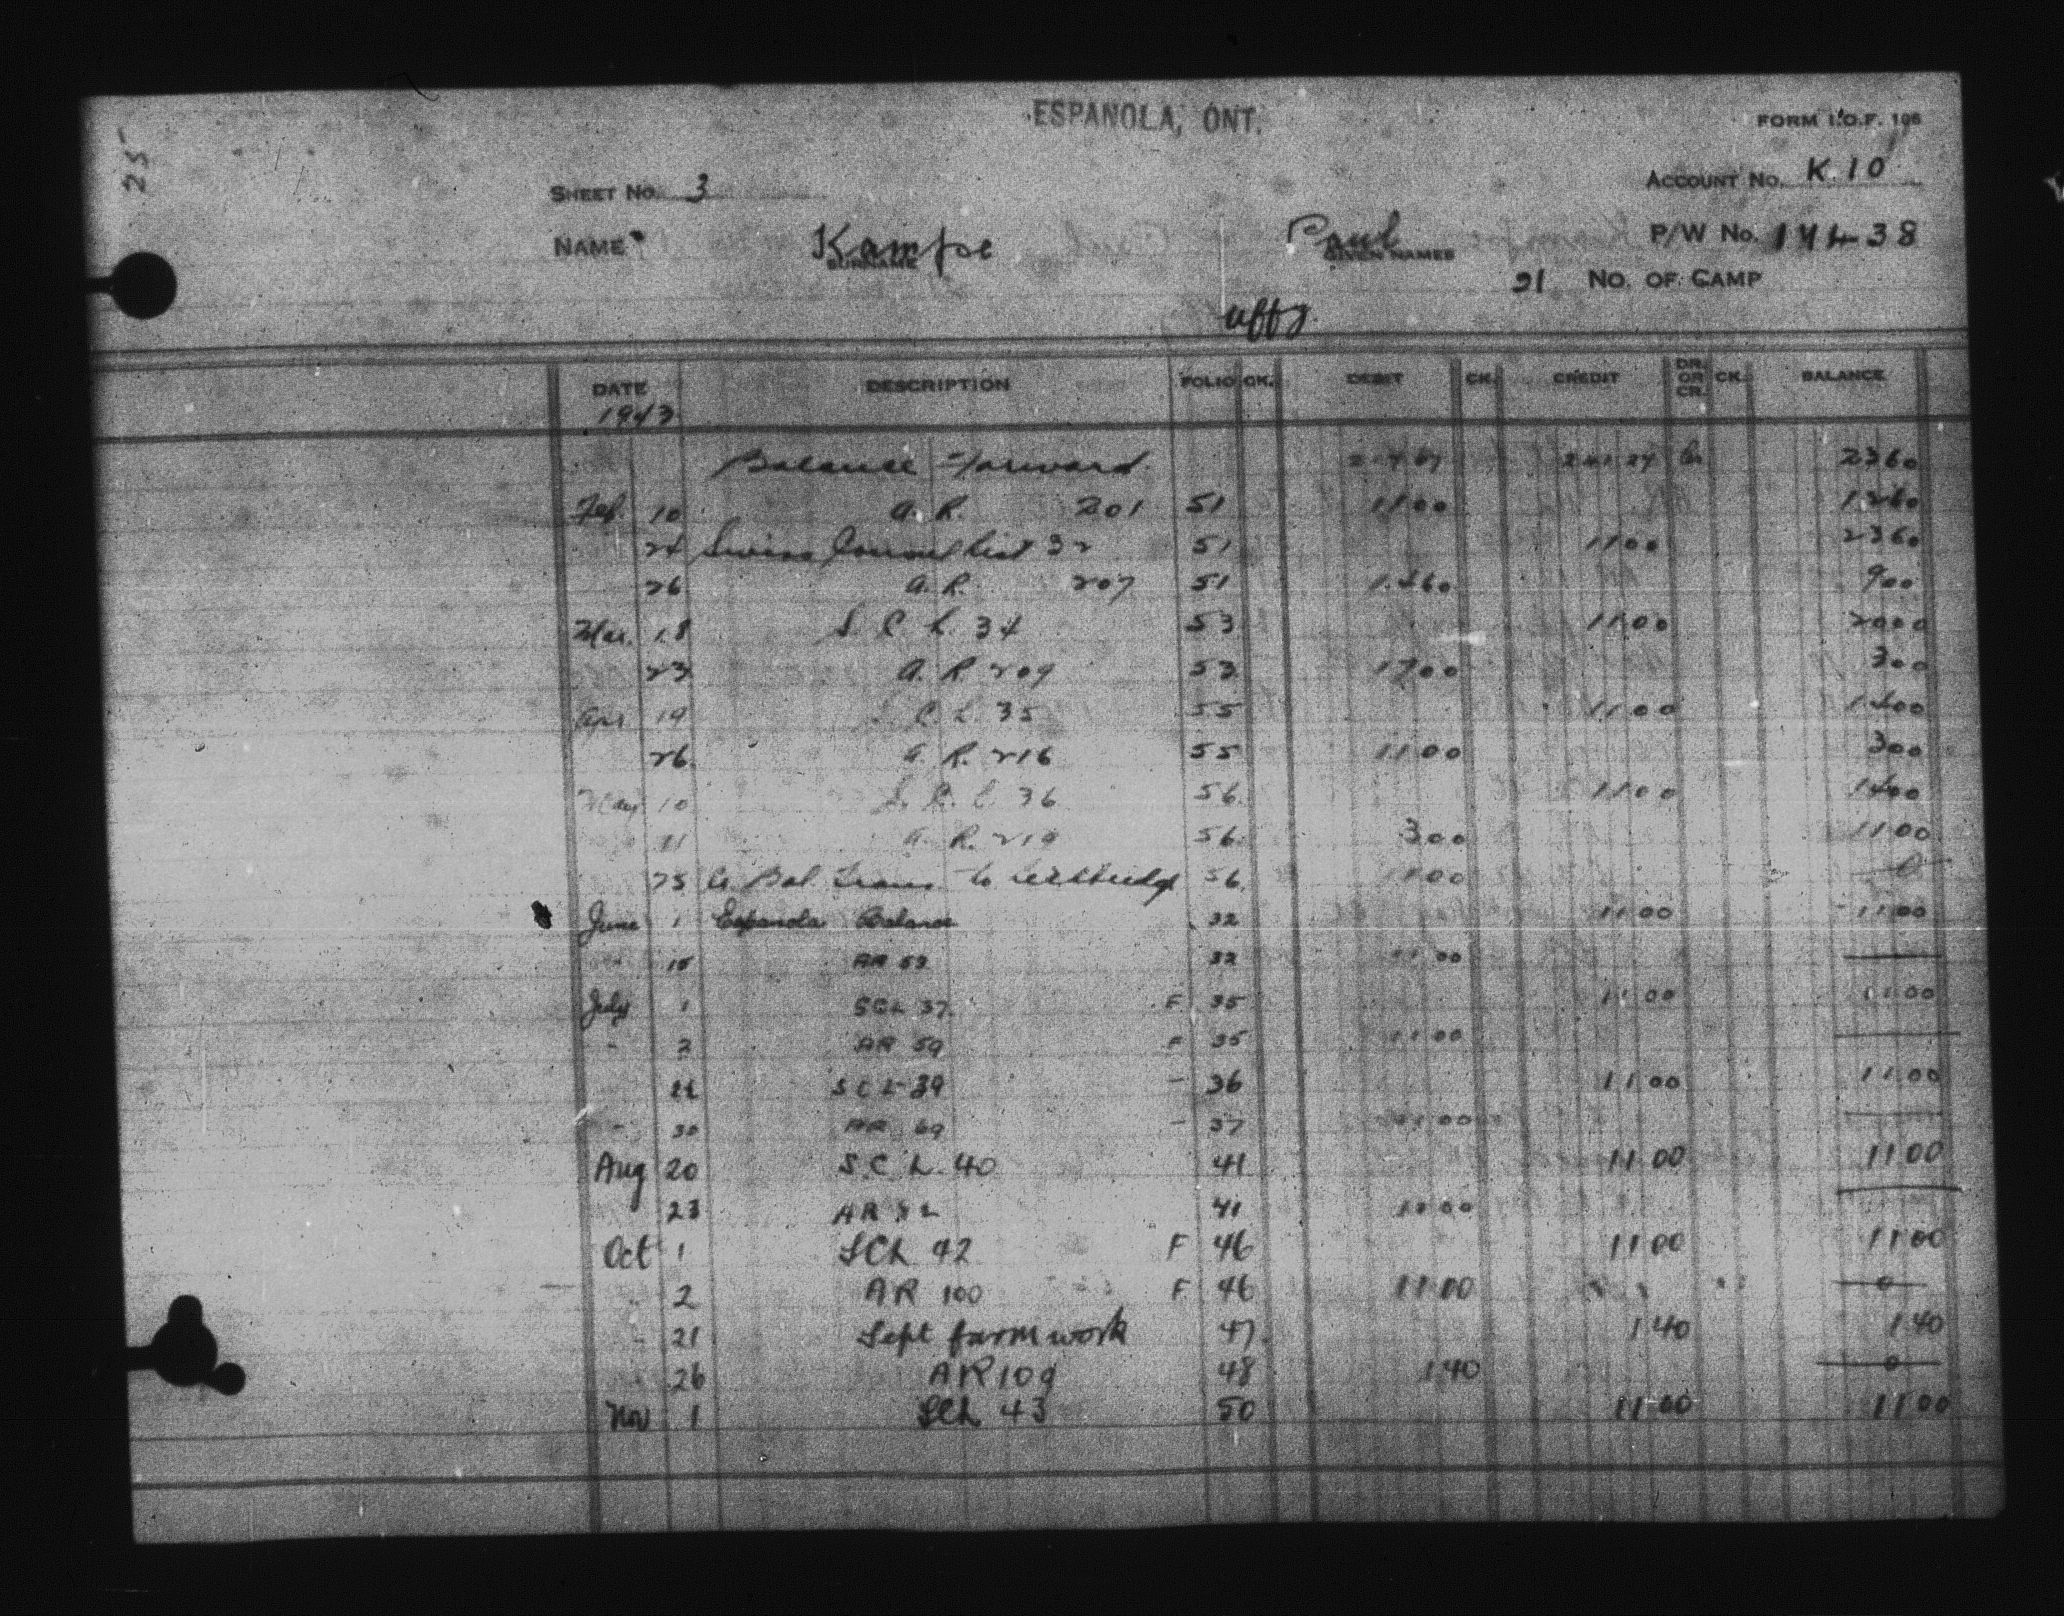 25
ESPANOLA, ONT.
FORM I.O.F. 106
SHEET NO. 3
ACCOUNT NO. K.10
NAME Kampe Paul P/W NO. 17438
SURNAME GIVEN NAMES
21 NO. OF CAMP
uffz.
DATE DESCRIPTION FOLIO CK. DEBIT CK. CREDIT DR. OR CR. CK. BALANCE
1943
Balance Forward Cr 23 60
Feb. 10 A. R. 201 51 11 00 12 60
24 Swiss Consul List 32 51 11 00 23 60
26 A. R. 207 51 14 60 9 00
Mar. 18 S. C. L. 34 53 11 00 20 00
23 A. R. 209 53 17 00 3 00
Apr 19 S. C. L. 35 55 11 00 14 00
26 A. R. 216 55 11 00 3 00
May 10 S. C. L. 36 56 11 00 14 00
11 A. R. 219 56 3 00 11 00
25 Cr. Bal Trans to Lethbridge 56 11 00 0
June 1 Espanola Balance 32 11 00 11 00
15 AR 53 32 11 00 —
July 1 SCL 37 F 35 11 00 11 00
" 2 AR 59 F 35 11 00 —
22 SCL 39 - 36 11 00 11 00
" 30 AR 69 - 37 11 00 —
Aug 20 S.C.L. 40 41 11 00 11 00
23 AR 82 41 11 00 —
Oct 1 SCL 42 F 46 11 00 11 00
" 2 AR 100 F 46 11 00 —0—
" 21 Sept farm work 47 1 40 1 40
" 26 AR 109 48 1 40 —0—
Nov 1 SCL 43 50 11 00 11 00